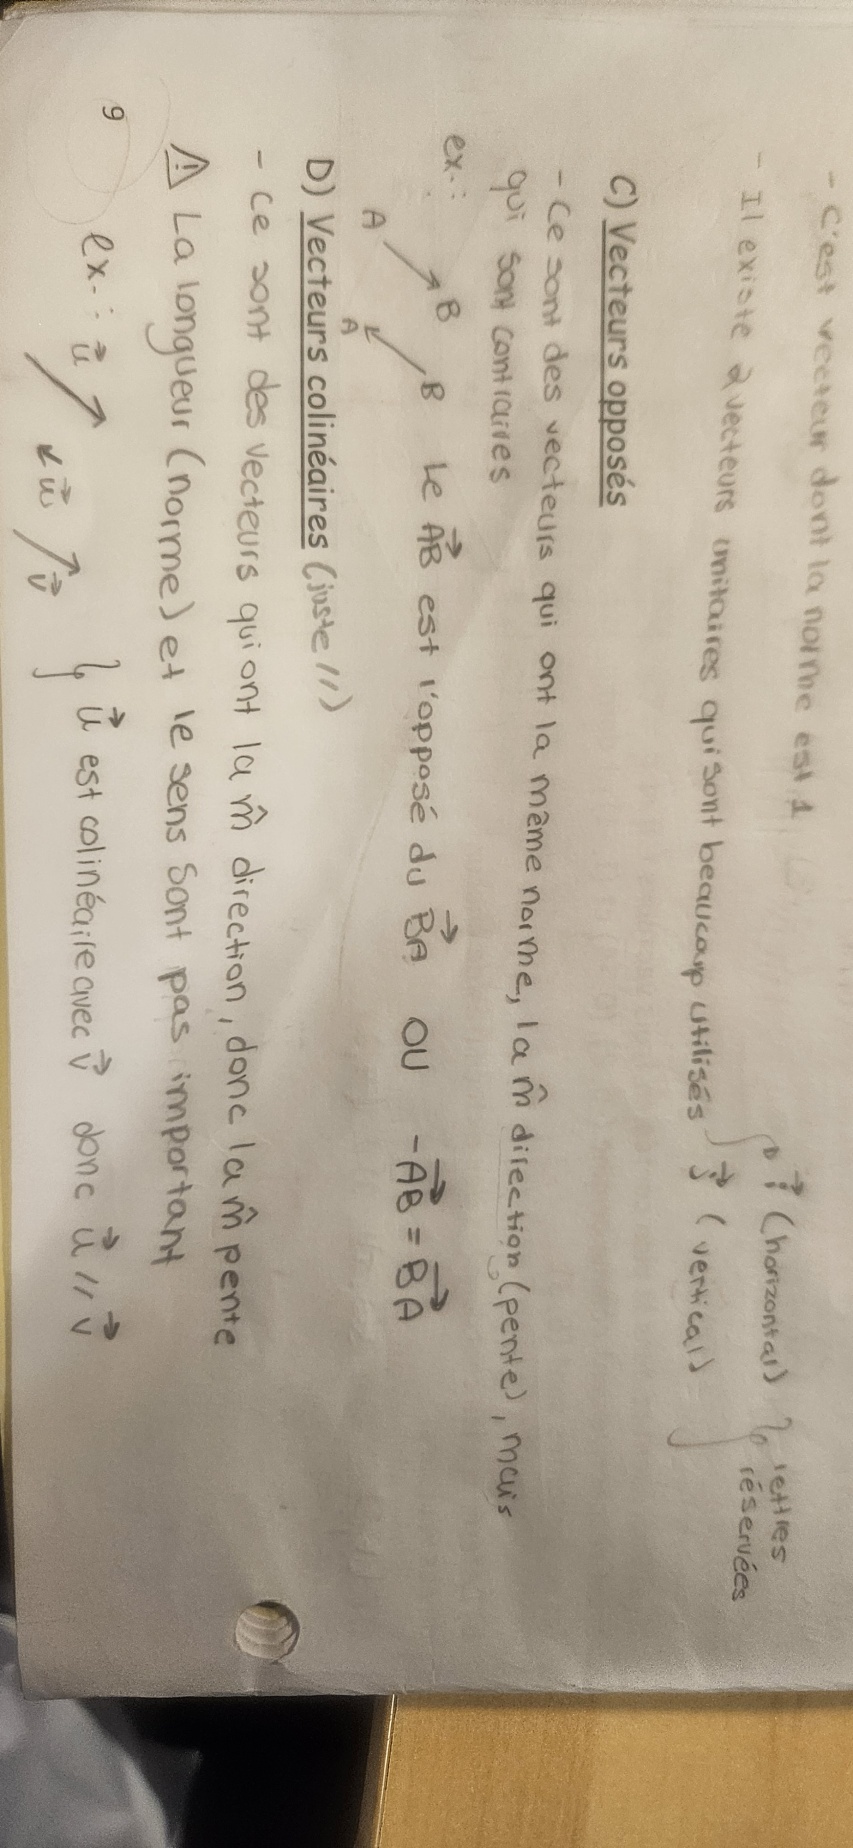 - C'est vecteur dont la norme est 1
- Il existe 2 vecteurs unitaires qui sont beaucoup utilisés
i⃗ (horizontal)
j⃗ (vertical)
lettres
réservées
C) Vecteurs opposés
- Ce sont des vecteurs qui ont la même norme, la m̂ direction (pente), mais
qui sont contraires
ex.: A B A B Le A⃗B est l'opposé du B⃗A OU -A⃗B = B⃗A
D) Vecteurs colinéaires (juste //)
- Ce sont des vecteurs qui ont la m̂ direction, donc la m̂ pente
⚠ La longueur (norme) et le sens sont pas important
ex.: u⃗ w⃗ v⃗ u⃗ est colinéaire avec v⃗ donc u⃗ // v⃗
9